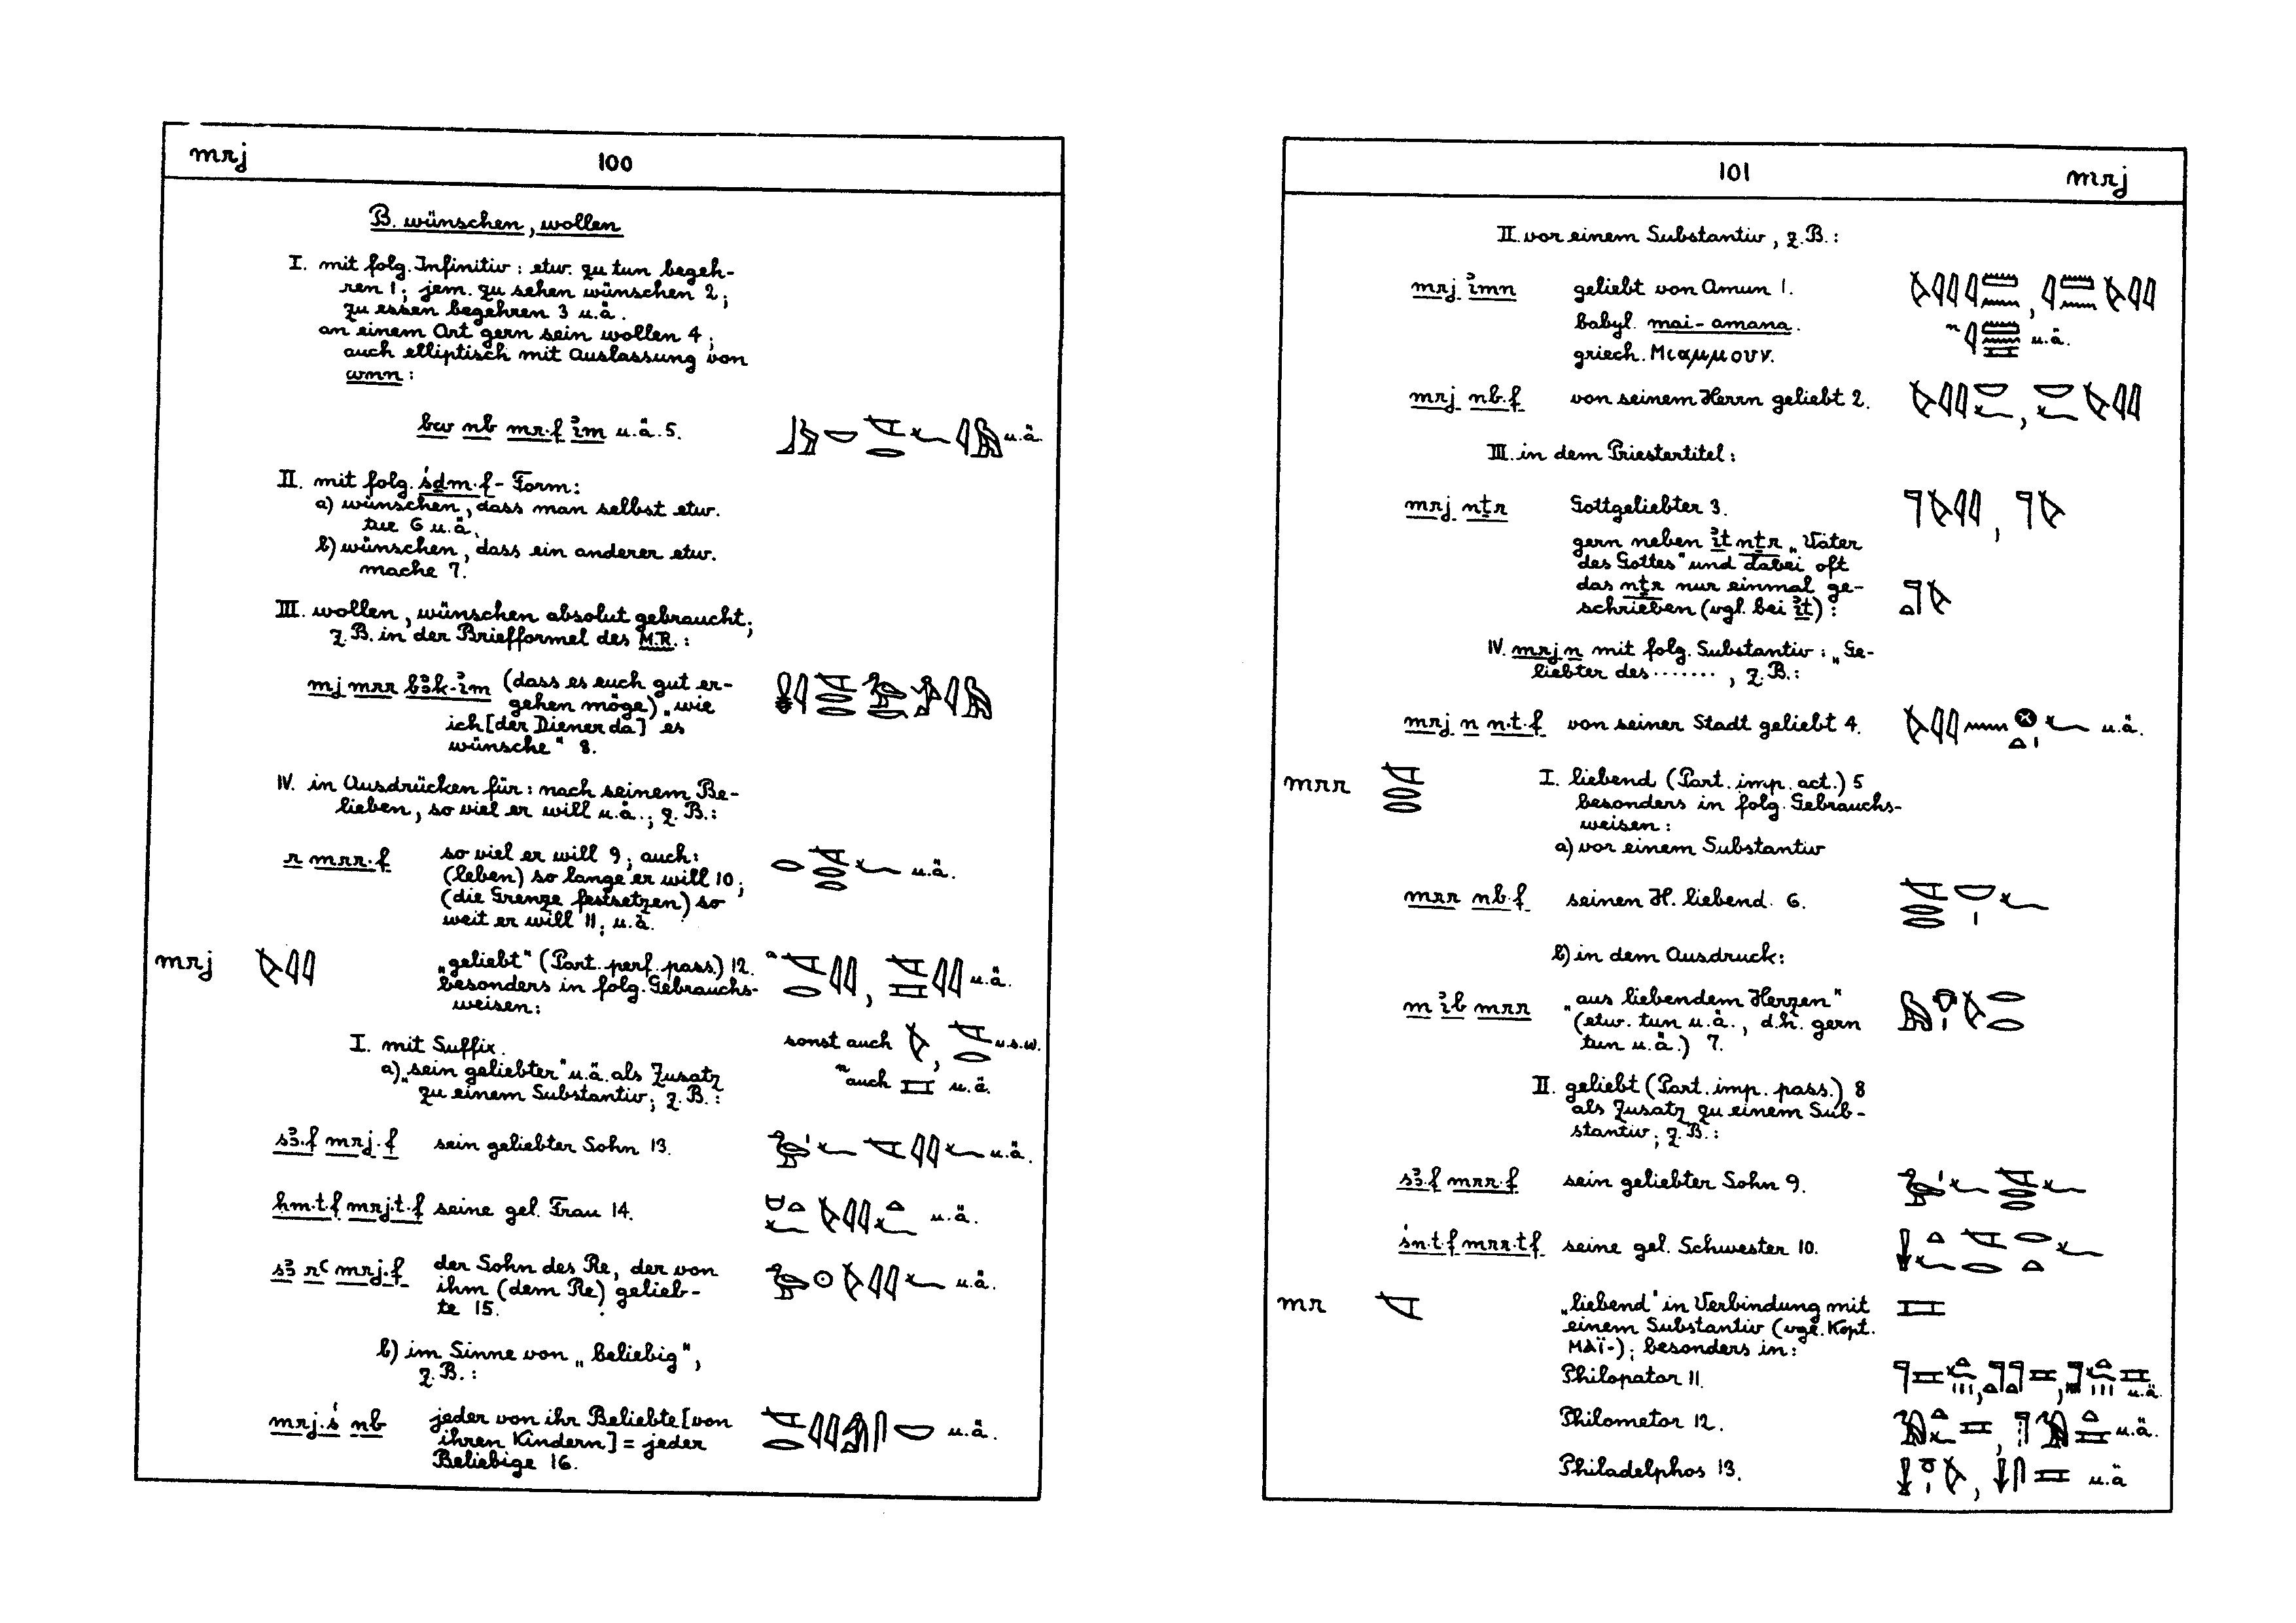 mrj 100
B. wünschen, wollen
I. mit folg. Infinitiv: etw. zu tun begeh-
ren 1; jem. zu sehen wünschen 2;
zu essen begehren 3 u.ä.
an einem Ort gern sein wollen 4;
auch elliptisch mit Auslassung von
wnn:
bw nb mr·f ỉm u.ä. 5. u.ä.
II. mit folg. śḏm·f-Form:
a) wünschen, dass man selbst etw.
tue 6 u.ä.
b) wünschen, dass ein anderer etw.
mache 7.
III. wollen, wünschen absolut gebraucht;
z.B. in der Briefformel des M.R.:
mj mrr bꜣk-ỉm (dass es euch gut er-
gehen möge) „wie
ich [der Diener da] es
wünsche" 8.
IV. in Ausdrücken für: nach seinem Be-
lieben, so viel er will u.ä.; z.B.:
r mrr·f so viel er will 9; auch: u.ä.
(leben) so lange er will 10;
(die Grenze festsetzen) so
weit er will 11; u.ä.
mrj „geliebt" (Part. perf. pass.) 12. a , u.ä.
besonders in folg. Gebrauchs-
weisen:
I. mit Suffix. sonst auch , u.s.w.
a) „sein geliebter" u.ä. als Zusatz n auch u.ä.
zu einem Substantiv; z.B.:
sꜣ·f mrj·f sein geliebter Sohn 13. u.ä.
ḥm·t·f mrj·t·f seine gel. Frau 14. u.ä.
sꜣ rꜥ mrj·f der Sohn des Re, der von u.ä.
ihm (dem Re) gelieb-
te 15.
b) im Sinne von „beliebig",
z.B.:
mrj·ś nb jeder von ihr Beliebte [von u.ä.
ihren Kindern] = jeder
Beliebige 16.
101 mrj
II. vor einem Substantiv, z.B.:
mrj ỉmn geliebt von Amun 1.
babyl. mai-amana. n u.ä.
griech. Μιαμμουν.
mrj nb·f von seinem Herrn geliebt 2.
III. in dem Priestertitel:
mrj nṯr Gottgeliebter 3.
gern neben ỉt nṯr „Vater
des Gottes" und dabei oft
das nṯr nur einmal ge-
schrieben (vgl. bei ỉt):
IV. mrj n mit folg. Substantiv: „Ge-
liebter des ......., z.B.:
mrj n n·t·f von seiner Stadt geliebt 4. u.ä.
mrr I. liebend (Part. imp. act.) 5
besonders in folg. Gebrauchs-
weisen:
a) vor einem Substantiv
mrr nb·f seinen H. liebend 6.
b) in dem Ausdruck:
m ỉb mrr „aus liebendem Herzen"
(etw. tun u.ä., d.h. gern
tun u.ä.) 7.
II. geliebt (Part. imp. pass.) 8
als Zusatz zu einem Sub-
stantiv; z.B.:
sꜣ·f mrr·f sein geliebter Sohn 9.
śn·t·f mrr·t·f seine gel. Schwester 10.
mr „liebend" in Verbindung mit
einem Substantiv (vgl. Kopt.
ⲙⲁⲓ̈-); besonders in:
Philopator 11. u.ä.
Philometor 12. u.ä.
Philadelphos 13. u.ä